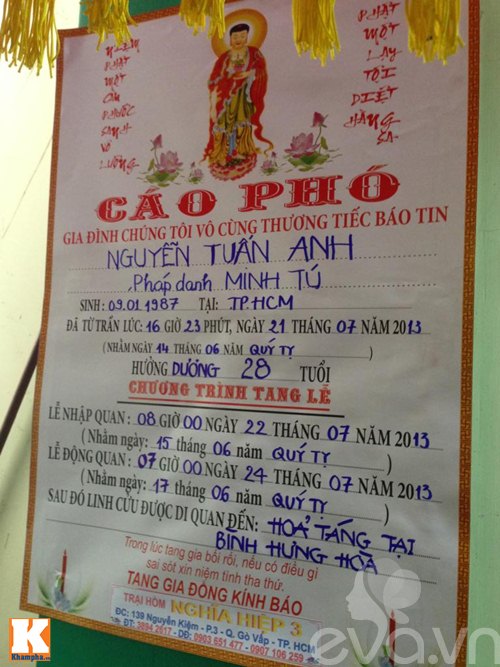 NIỆM
PHẬT
MỘT
CÂU
PHƯỚC
SANH
VÔ
LƯỢNG
PHẬT
MỘT
LẠY
TỘI
DIỆT
HẰNG
SA
CÁO PHÓ
GIA ĐÌNH CHÚNG TÔI VÔ CÙNG THƯƠNG TIẾC BÁO TIN
NGUYỄN TUẤN ANH
Pháp danh MINH TÚ
SINH : 09.01.1987 TẠI: TP.HCM
ĐÃ TỪ TRẦN LÚC: 16 GIỜ 23 PHÚT, NGÀY 21 THÁNG 07 NĂM 2013
(NHẰM NGÀY 14 THÁNG 06 NĂM QUÝ TỴ )
HƯỞNG DƯƠNG 28 TUỔI
CHƯƠNG TRÌNH TANG LỄ
LỄ NHẬP QUAN : 08 GIỜ 00 NGÀY 22 THÁNG 07 NĂM 2013
( Nhằm ngày: 15 tháng 06 năm QUÝ TỴ )
LỄ ĐỘNG QUAN : 07 GIỜ 00 NGÀY 24 THÁNG 07 NĂM 2013
( Nhằm ngày: 17 tháng 06 năm QUÝ TỴ )
SAU ĐÓ LINH CỬU ĐƯỢC DI QUAN ĐẾN: HOẢ TÁNG TẠI
BÌNH HƯNG HOÀ
Trong lúc tang gia bối rối, nếu có điều gì
sai sót xin niệm tình tha thứ.
TANG GIA ĐỒNG KÍNH BÁO
TRẠI HÒM NGHĨA HIỆP 3
ĐC: 139 Nguyễn Kiệm - P.3 - Q. Gò Vấp - TP. HCM
ĐT: 5894 2617 - DĐ: 0903 651 477 - 0907 106 259
K
Khampha.vn
eva.vn